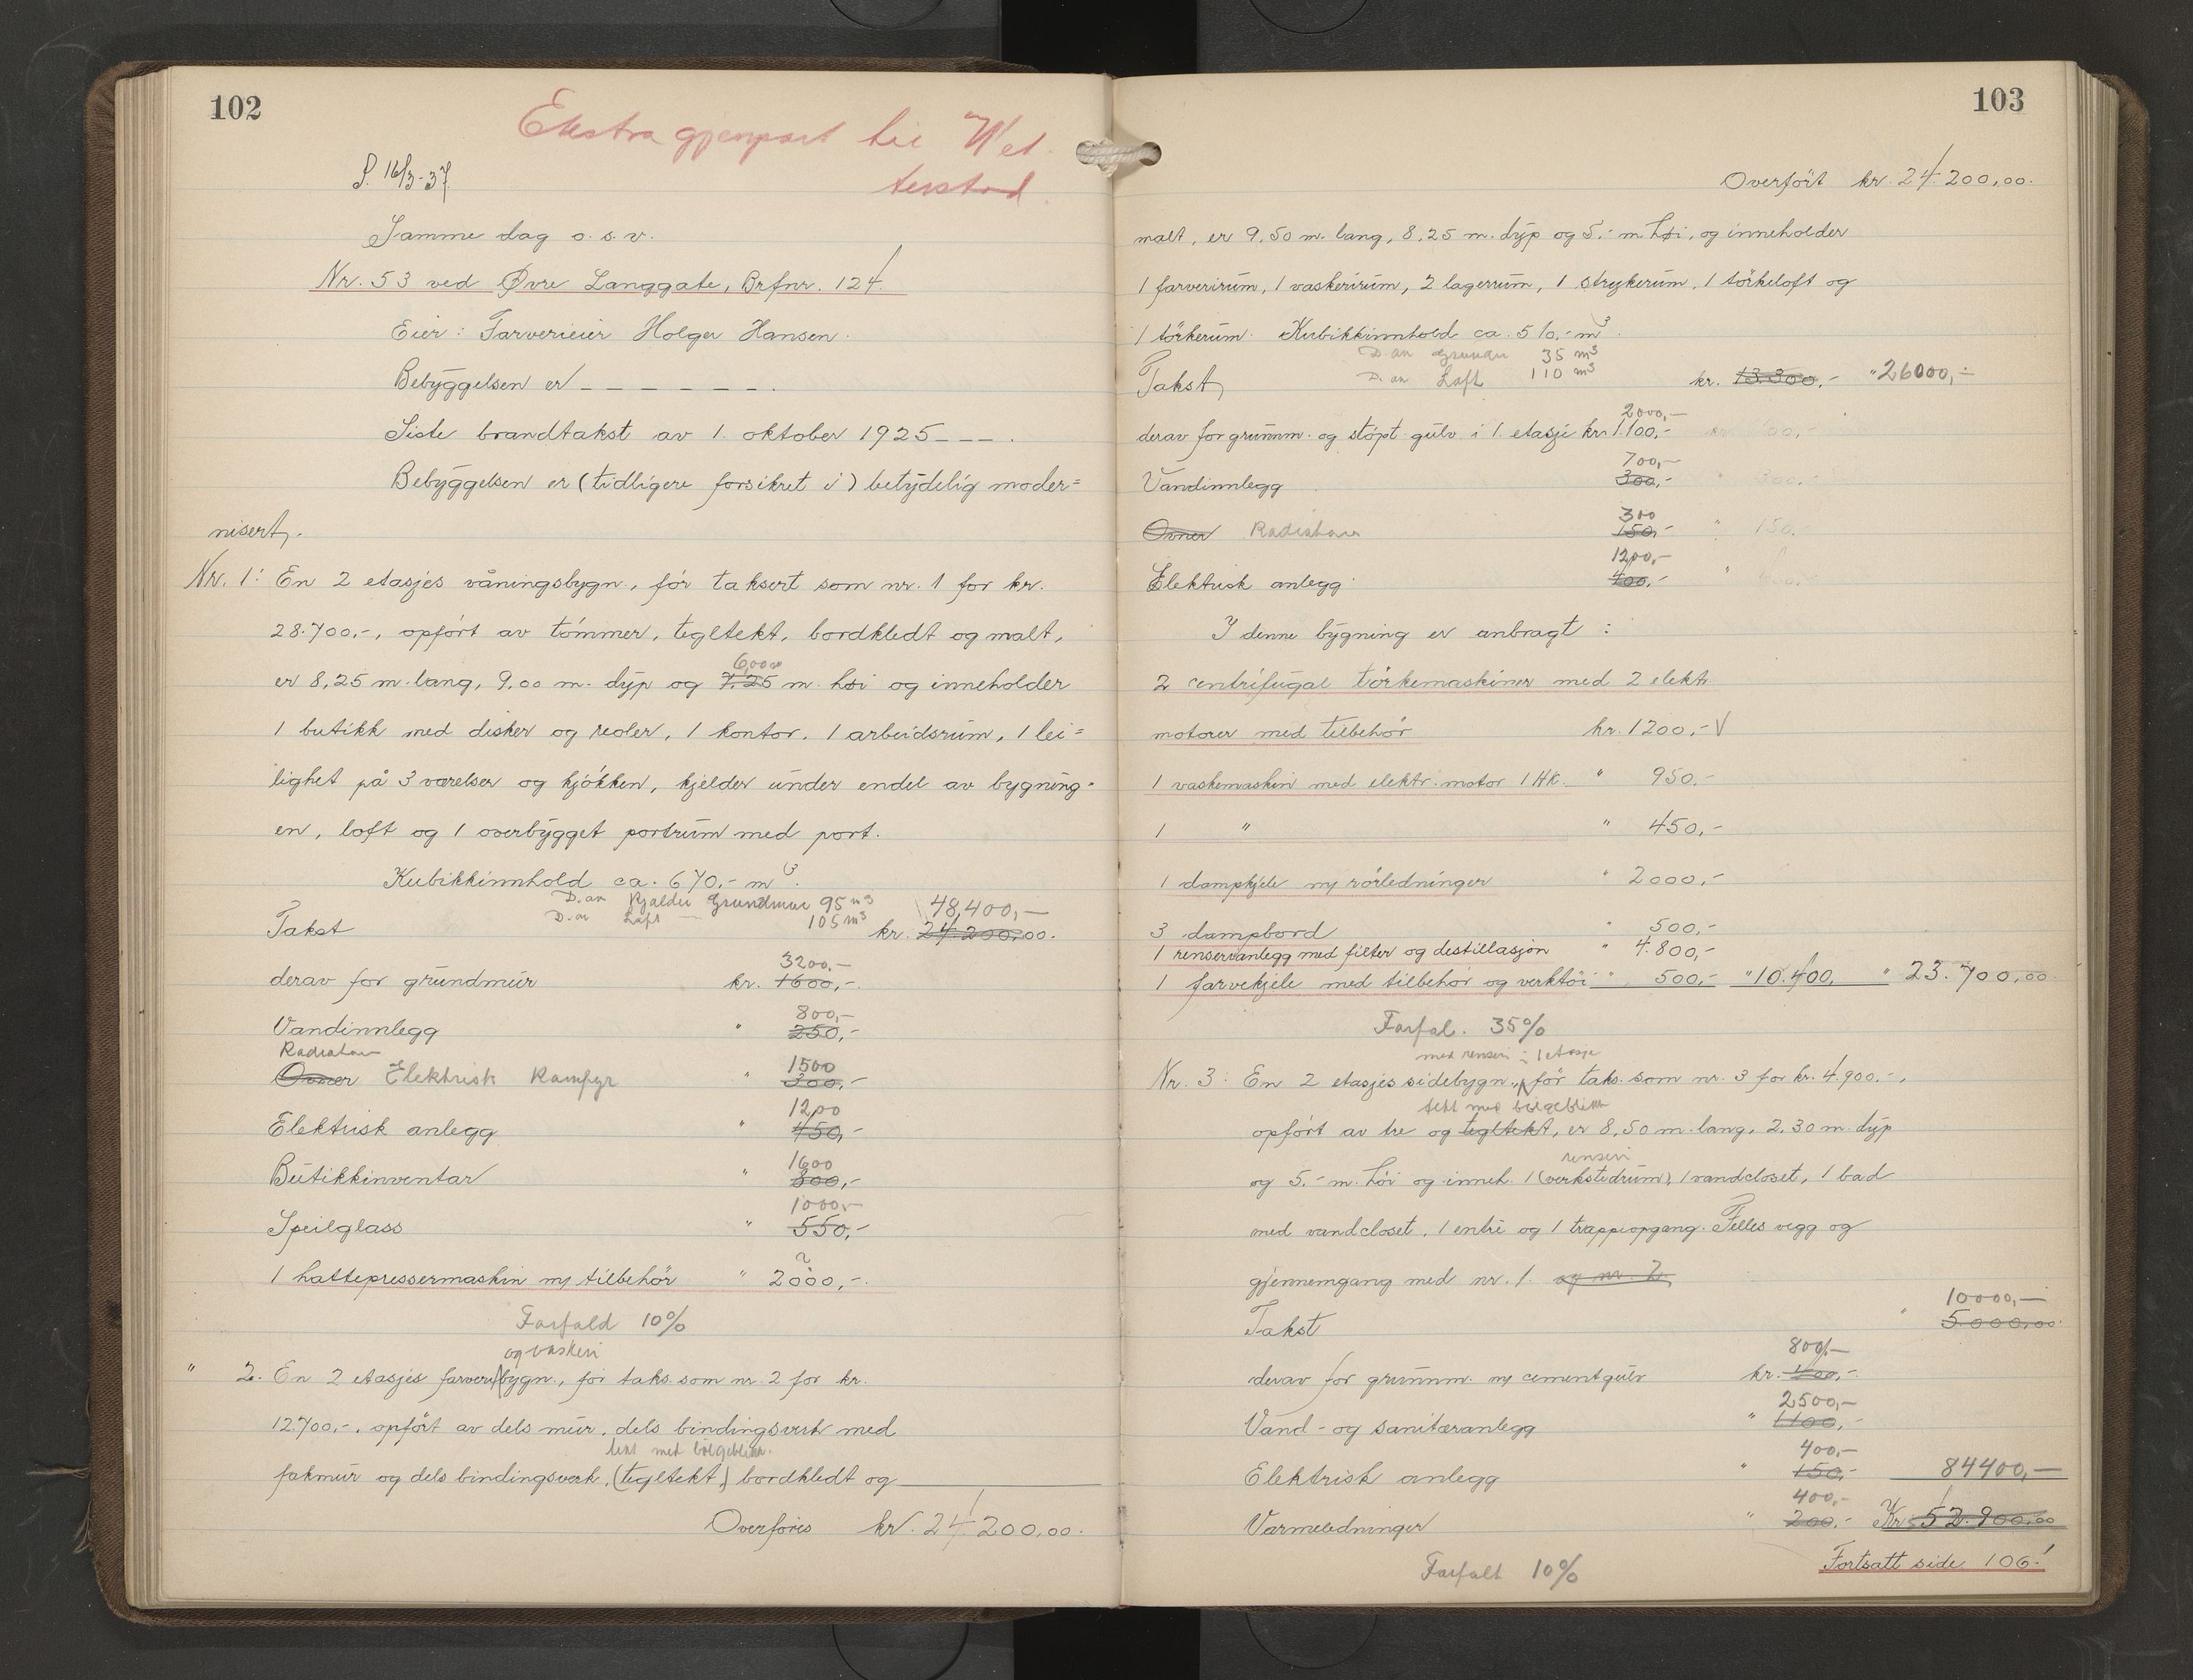 102
Ekstra gjenpart til Wet
terstad
S. 16/3-37.
Samme dag o. s. v.
Nr. 53 ved Øvre Langgate, Brfnr. 124.
Eier: Farverieier Holger Hansen.
Bebyggelsen er _ _ _ _ _ _ _ .
Siste brandtakst av 1. oktober 1925 _ _ _ .
Bebyggelsen er (tidligere forsikret i) betydelig moder=
nisert.
Nr. 1: En 2 etasjes våningsbygn., før taksert som nr. 1 for kr.
28.700.-, opført av tømmer, tegltekt, bordkledt og malt,
6,00 m
er 8,25 m. lang, 9,00 m. dyp og 7,25 m. høi og inneholder
1 butikk med disker og reoler, 1 kontor, 1 arbeidsrum, 1 lei=
lighet på 3 værelser og kjøkken, kjelder under endel av bygning=
en, loft og 1 overbygget portrum med port.
Kubikkinnhold ca. 670.- m3.
D. an Kjelder Grundmur 95 m3
D. an Loft — 105 m3
48,400,—
Takst kr. 24.200,00.
3200,—
derav for grundmur kr. 1600,-.
800,—
Vandinnlegg " 250,-
Radiator
1500
Ovner Elektrisk Komfyr " 300,-
1200
Elektrisk anlegg " 450,-
1600
Butikkinventar " 800,-
1000,—
Speilglass " 550,-
?
1 hattepressermaskin m/ tilbehør " 2000,-.
Forfald 10%
og vaskeri
" 2. En 2 etasjes farveribygn., før taks. som nr. 2 for kr.
12.700,-, opført av dels mur, dels bindingsverk med
tekt med bølgeblikk.
fakmur og dels bindingsverk, (tegltekt,) bordkledt og
Overføres kr. 24.200,00.
103
Overført kr. 24.200,00.
malt, er 9,50 m. lang, 8,25 m. dyp og 5.- m. høi, og inneholder
1 farverirum, 1 vaskerirum, 2 lagerrum, 1 strykerum, 1 tørkeloft og
1 tørkerum. Kubikkinnhold ca. 510.- m3.
D. an Grunder 35 m3
D. an Loft 110 m3
Takst kr. 13.300,- " 26000,-
2000,—
derav for grunnm. og støpt gulv i 1. etasje kr. 1.100,-
700,—
Vandinnlegg 300,-
300
Ovner Radiatorer 150,- " 150.-
1200,—
Elektrisk anlegg 400,-
I denne bygning er anbragt :
2 centrifugal tørkemaskiner med 2 elektr.
motorer med tilbehør kr. 1200,- V
1 vaskemaskin med elektr. motor 1 HK. " 950.-
1 " " 450,-
1 dampkjele m/ rørledninger " 2000,-
3 dampbord " 500,-
1 renserianlegg med filter og destillasjon " 4.800,-
1 farvekjele med tilbehør og verktøi " 500,- " 10.400, " 23.700,00
Forfal. 35%
med renseri i 1 etasje
Nr. 3: En 2 etasjes sidebygn., før taks. som nr. 3 for kr. 4.900.-,
tekt med bølgeblikk
opført av tre og tegltekt, er 8,50 m. lang, 2,30 m. dyp
renseri
og 5.- m. høi og inneh. 1 (verkstedrum), 1 vandcloset, 1 bad
med vandcloset, 1 entre og 1 trappeopgang. Felles vegg og
gjennemgang med nr. 1. og nr. 2.
10000,—
Takst " 5.000,00
800,—
derav for grunnm. m/ cementgulv kr. 400,-.
2500,—
Vand- og sanitæranlegg " 1100,-
400,—
Elektrisk anlegg " 150,- 84400,—
400,-
Varmeledninger " 200,- Kr. 52.900,00
Fortsatt side 106.
Forfalt 10%